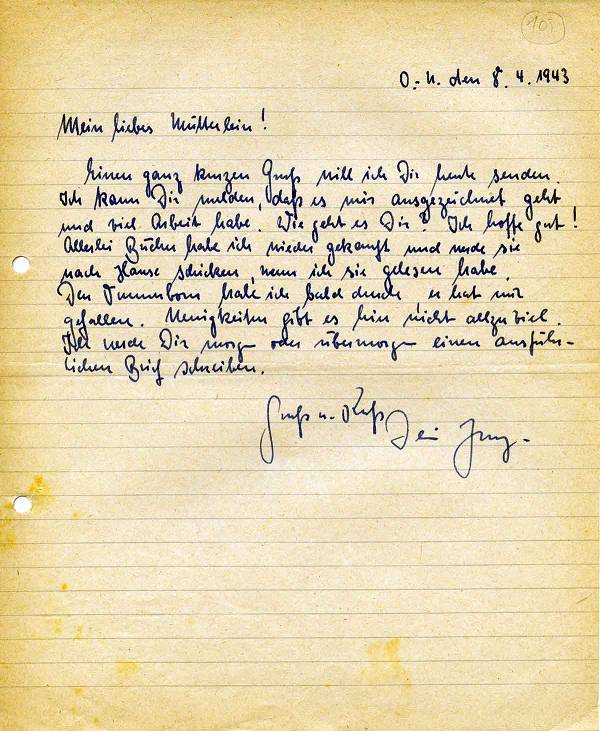 105
O.-U. den 8. 4. 1943
Mein liebes Mütterlein!
Einen ganz kurzen Gruß will ich Dir heute senden.
Ich kann Dir melden, daß es mir ausgezeichnet geht
und viel Arbeit habe. Wie geht es Dir? Ich hoffe gut!
Allerlei Bücher habe ich wieder gekauft und werde sie
nach Hause schicken, wenn ich sie gelesen habe.
Den habe ich bald durch, er hat mir
gefallen. Neuigkeiten gibt es hier nicht allzuviel.
Ich werde Dir morgen oder übermorgen einen ausführ-
lichen Brief schreiben.
Gruß u. Kuß Dein Jung.